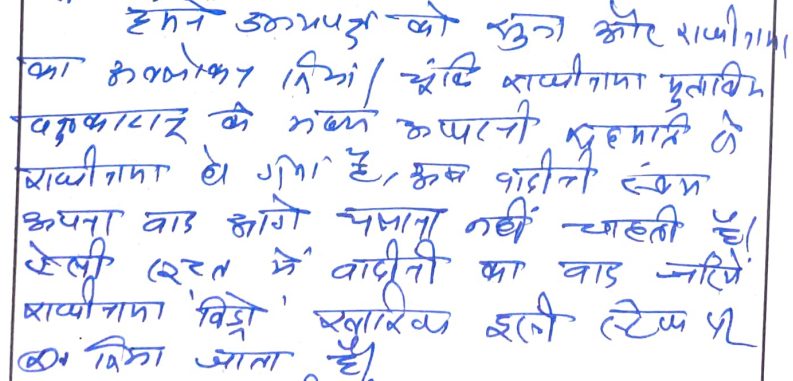 हमने उभयपक्षों को सुना और राजीनामा
का अवलोकन किया। चूंकि राजीनामा मुताबिक
पक्षकारान के मध्य आपसी सहमति से
राजीनामा हो गया है, अब वादीनी स्वयं
अपना वाद आगे चलाना नहीं चाहती है।
ऐसी सूरत में वादीनी का वाद जरिये
राजीनामा 'विड्रो' खारिज इसी स्टेज पर
किया जाता है।